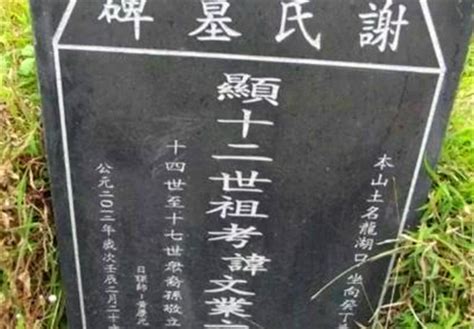 謝氏墓碑
本山土名龍湖口 坐向癸丁
顯十二世祖考諱文業
十四世至十七世眾裔孫敬立
日課師:黃
公元二〇一二年歲次壬辰二月二十